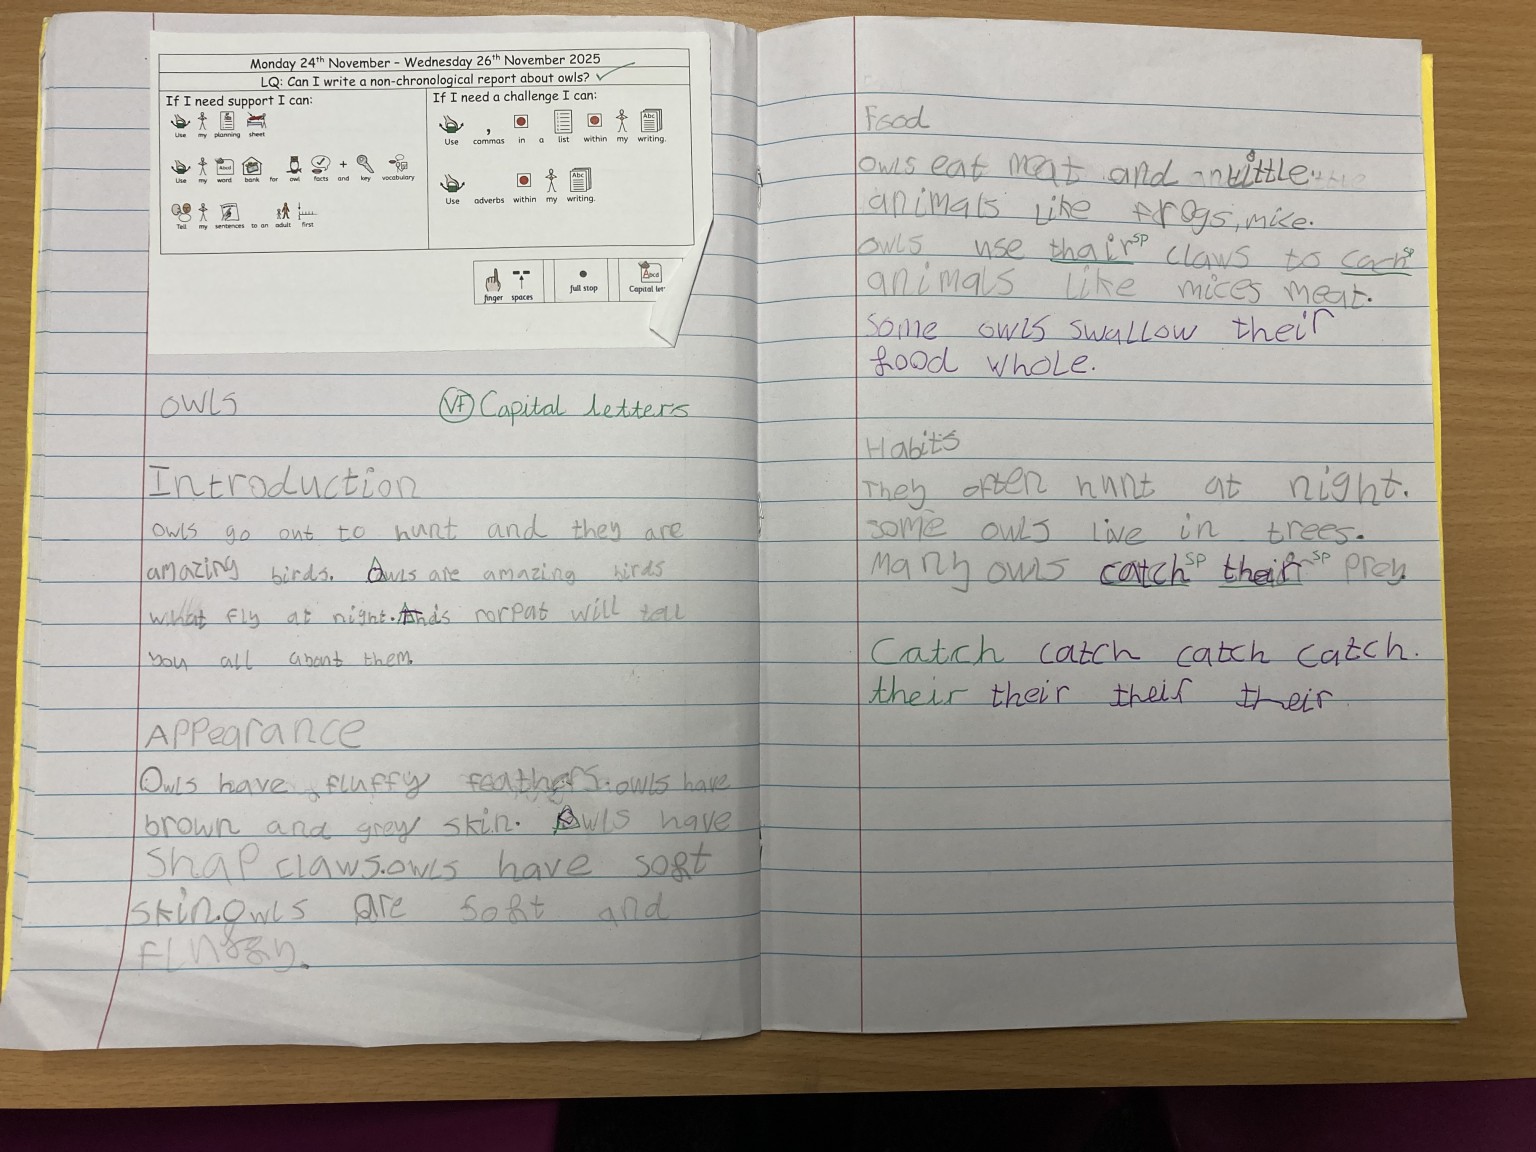 Monday 24th November – Wednesday 26th November 2025
LQ: Can I write a non-chronological report about owls?
If I need support I can:
Use my planning sheet
Use my word bank for owl facts and key vocabulary
Tell my sentences to an adult first
If I need a challenge I can:
Use commas in a list within my writing.
Use adverbs within my writing.
finger spaces
full stop
Capital let
owls
VF Capital letters
Introduction
owls go out to hunt and they are
amazing birds. Owls are amazing birds
what fly at night. this rorpat will tell
you all about them.
Appearance
Owls have fluffy feathers. owls have
brown and grey skin. Owls have
shap claws. owls have soft
skin. owls are soft and
fluffy.
Food
owls eat meat and little
animals like frogs, mice.
owls use thair sp claws to sp
animals like mices meat.
some owls swallow their
food whole.
Habits
They often hunt at night.
some owls live in trees.
Many owls catch sp their sp prey.
Catch catch catch catch.
their their their their